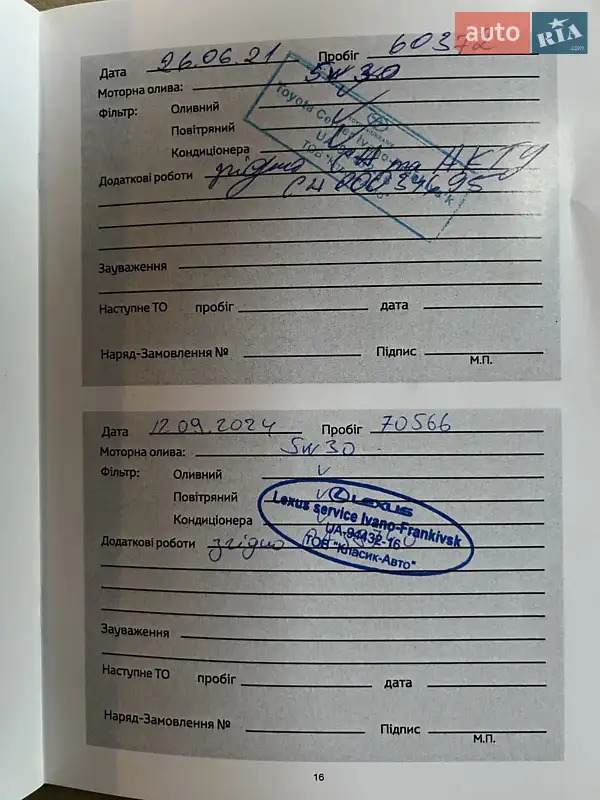 auto RIA .com
Дата 26.06.21 Пробіг 60372
Моторна олива: 5w30
Фільтр: Оливний v
Повітряний v
Кондиціонера v
Додаткові роботи згідно та АКТУ
СН 00034695
Toyota
ТОВ
Зауваження
Наступне ТО пробіг дата
Наряд-Замовлення № Підпис
М.П.
Дата 12.09.2024 Пробіг 70566
Моторна олива: 5w30
Фільтр: Оливний v
Повітряний v
Кондиціонера
Додаткові роботи згідно
LEXUS
Lexus service Ivano-Frankivsk
UA-94432-16
ТОВ "Класик-Авто"
Зауваження
Наступне ТО пробіг дата
Наряд-Замовлення № Підпис
М.П.
16